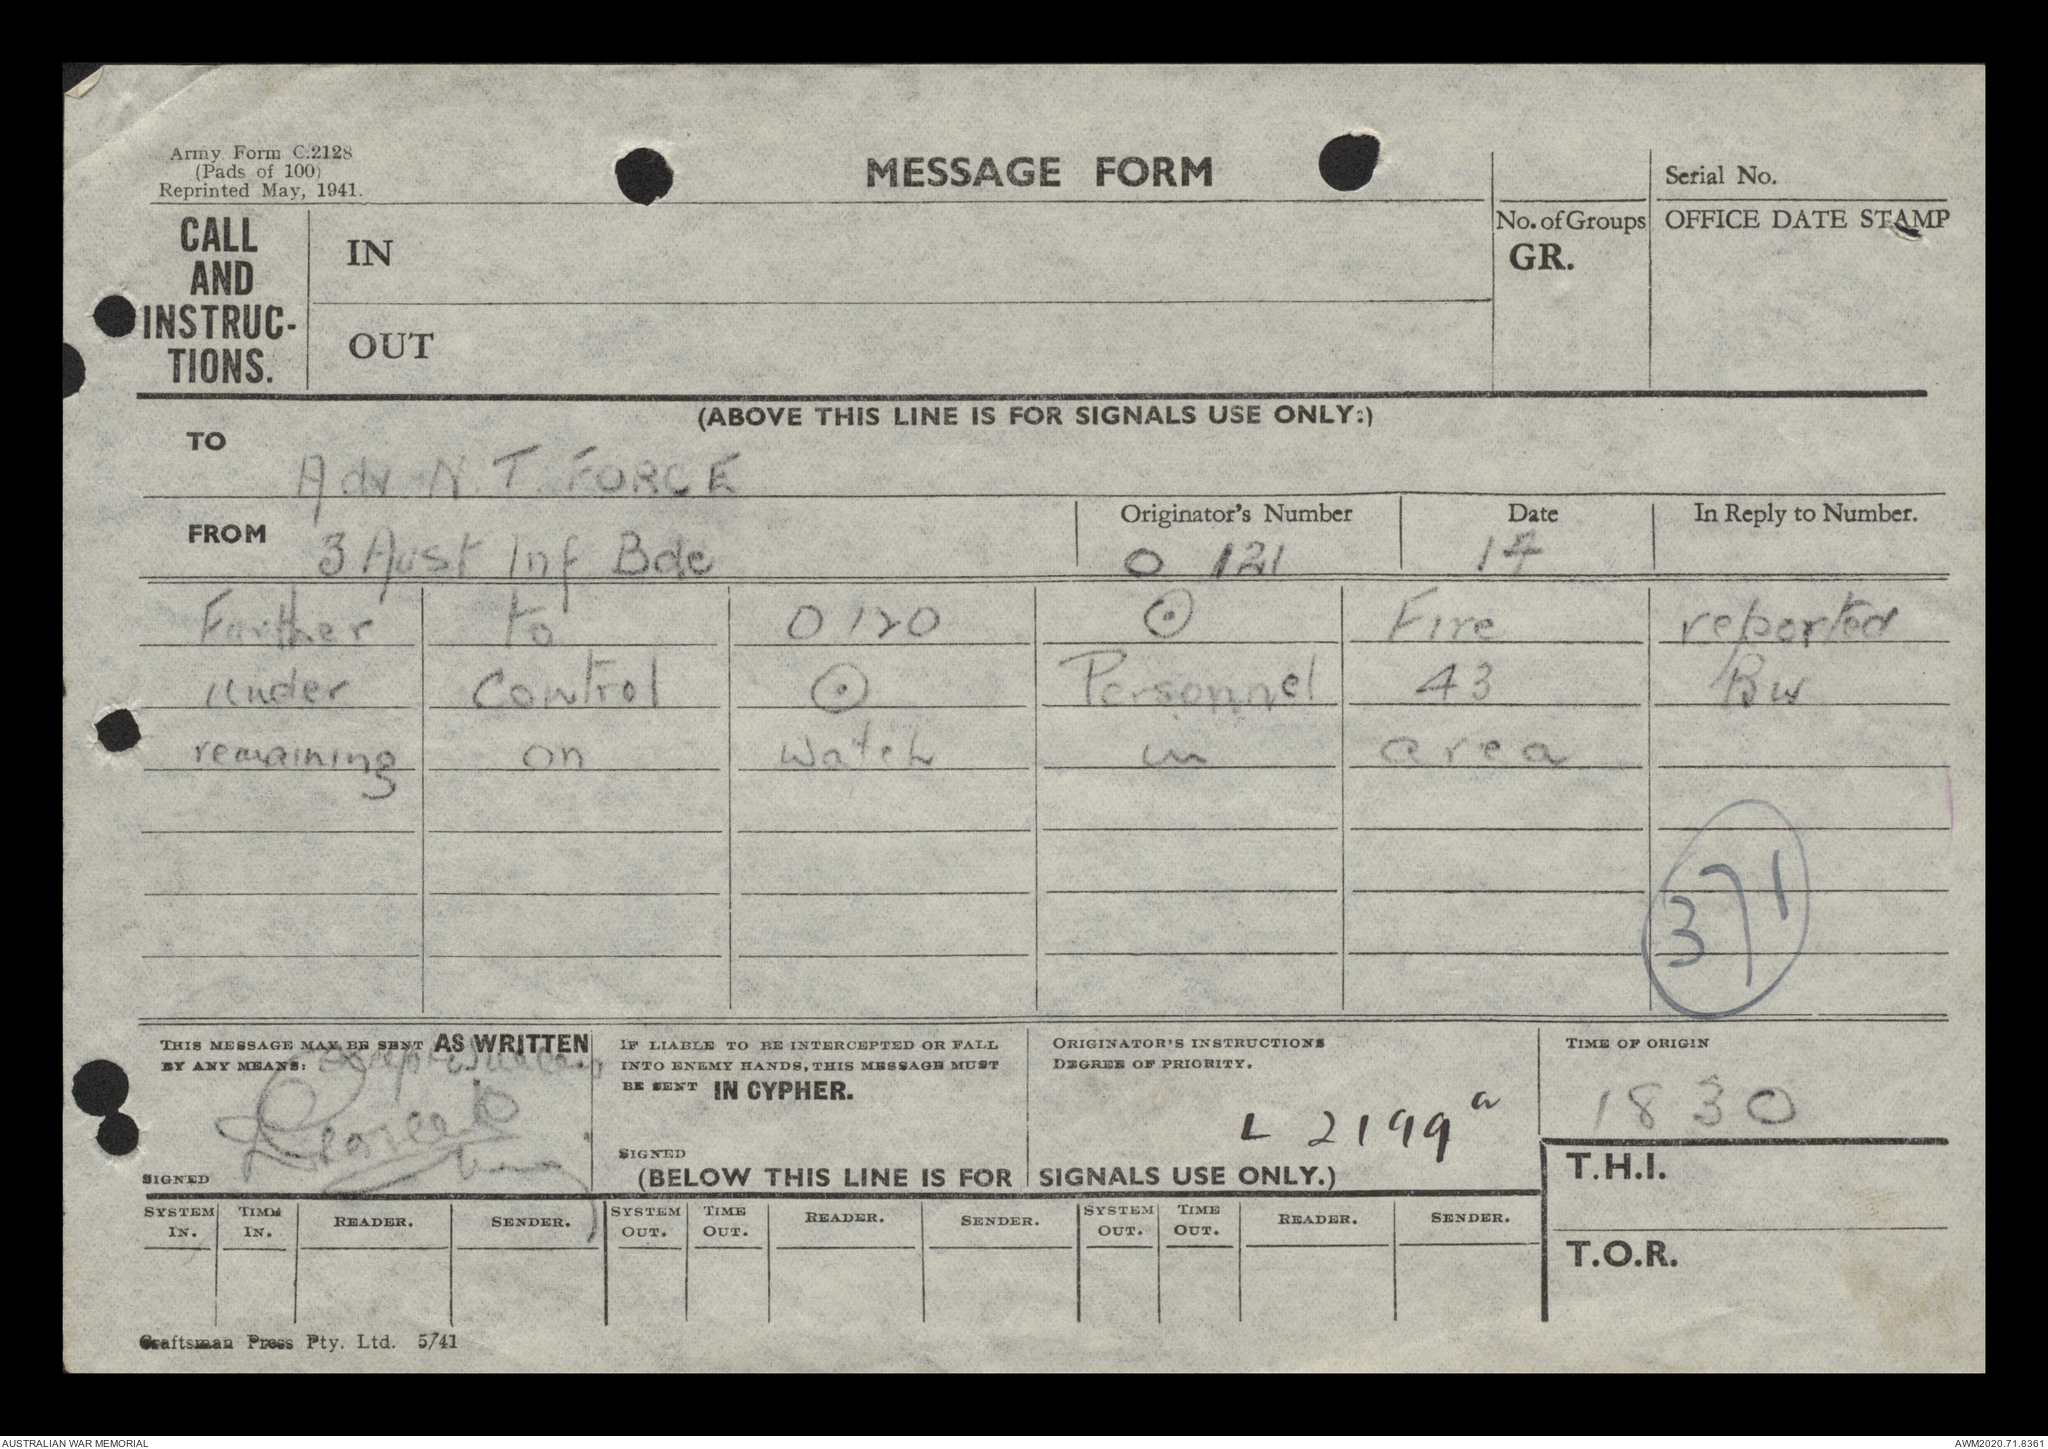 Army Form C.2128
(Pads of 100)
Reprinted May, 1941.
MESSAGE FORM
Serial No.
CALL AND INSTRUC-TIONS.
IN
OUT
No. of Groups
GR.
OFFICE DATE STAMP
(ABOVE THIS LINE IS FOR SIGNALS USE ONLY:)
TO
Adv N.T. FORCE
FROM
3 Aust Inf Bde
Originator's Number
O 121
Date
14
In Reply to Number.
Further to O120 ⊙ Fire reported
under control ⊙ Personnel 43 Bn
remaining on watch in area
371
THIS MESSAGE MAY BE SENT AS WRITTEN
BY ANY MEANS:
SIGNED
IF LIABLE TO BE INTERCEPTED OR FALL
INTO ENEMY HANDS, THIS MESSAGE MUST
BE SENT IN CYPHER.
SIGNED
ORIGINATOR'S INSTRUCTIONS
DEGREE OF PRIORITY.
L 2199a
TIME OF ORIGIN
1830
(BELOW THIS LINE IS FOR SIGNALS USE ONLY.)
T.H.I.
T.O.R.
SYSTEM IN. TIME IN. READER. SENDER. SYSTEM OUT. TIME OUT. READER. SENDER. SYSTEM OUT. TIME OUT. READER. SENDER.
Craftsman Press Pty. Ltd. 5/41
AUSTRALIAN WAR MEMORIAL
AWM2020.71.8361